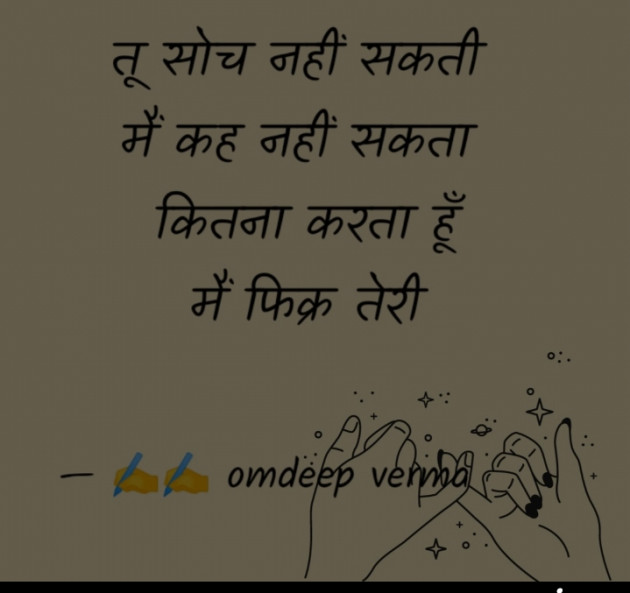 तू सोच नहीं सकती
मैं कह नहीं सकता
कितना करता हूँ
मैं फिक्र तेरी
— ✍️✍️ omdeep verma